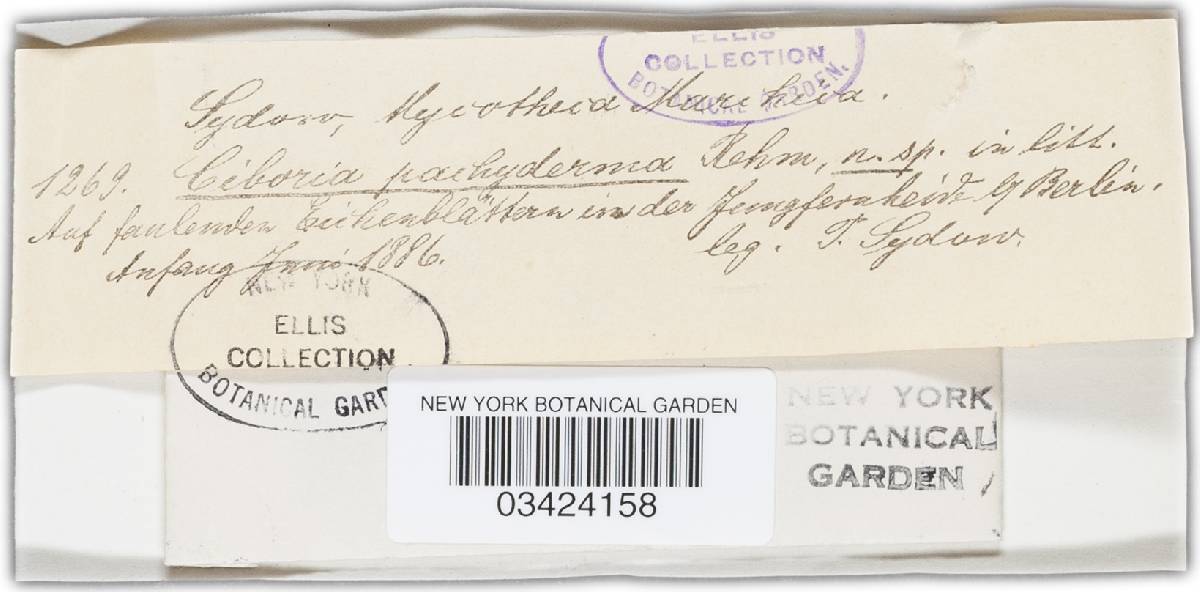 ELLIS
COLLECTION
BOTANICAL GARDEN.
Sydow, Mycotheca Marchica.
1269. Ciboria pachyderma Rehm, n. sp. in litt.
Auf faulenden Eichenblättern in der Jungfernheide b/ Berlin.
Anfang Juni 1886. leg. P. Sydow.
NEW YORK
ELLIS
COLLECTION
BOTANICAL GARD
NEW YORK BOTANICAL GARDEN
03424158
NEW YORK
BOTANICAL
GARDEN